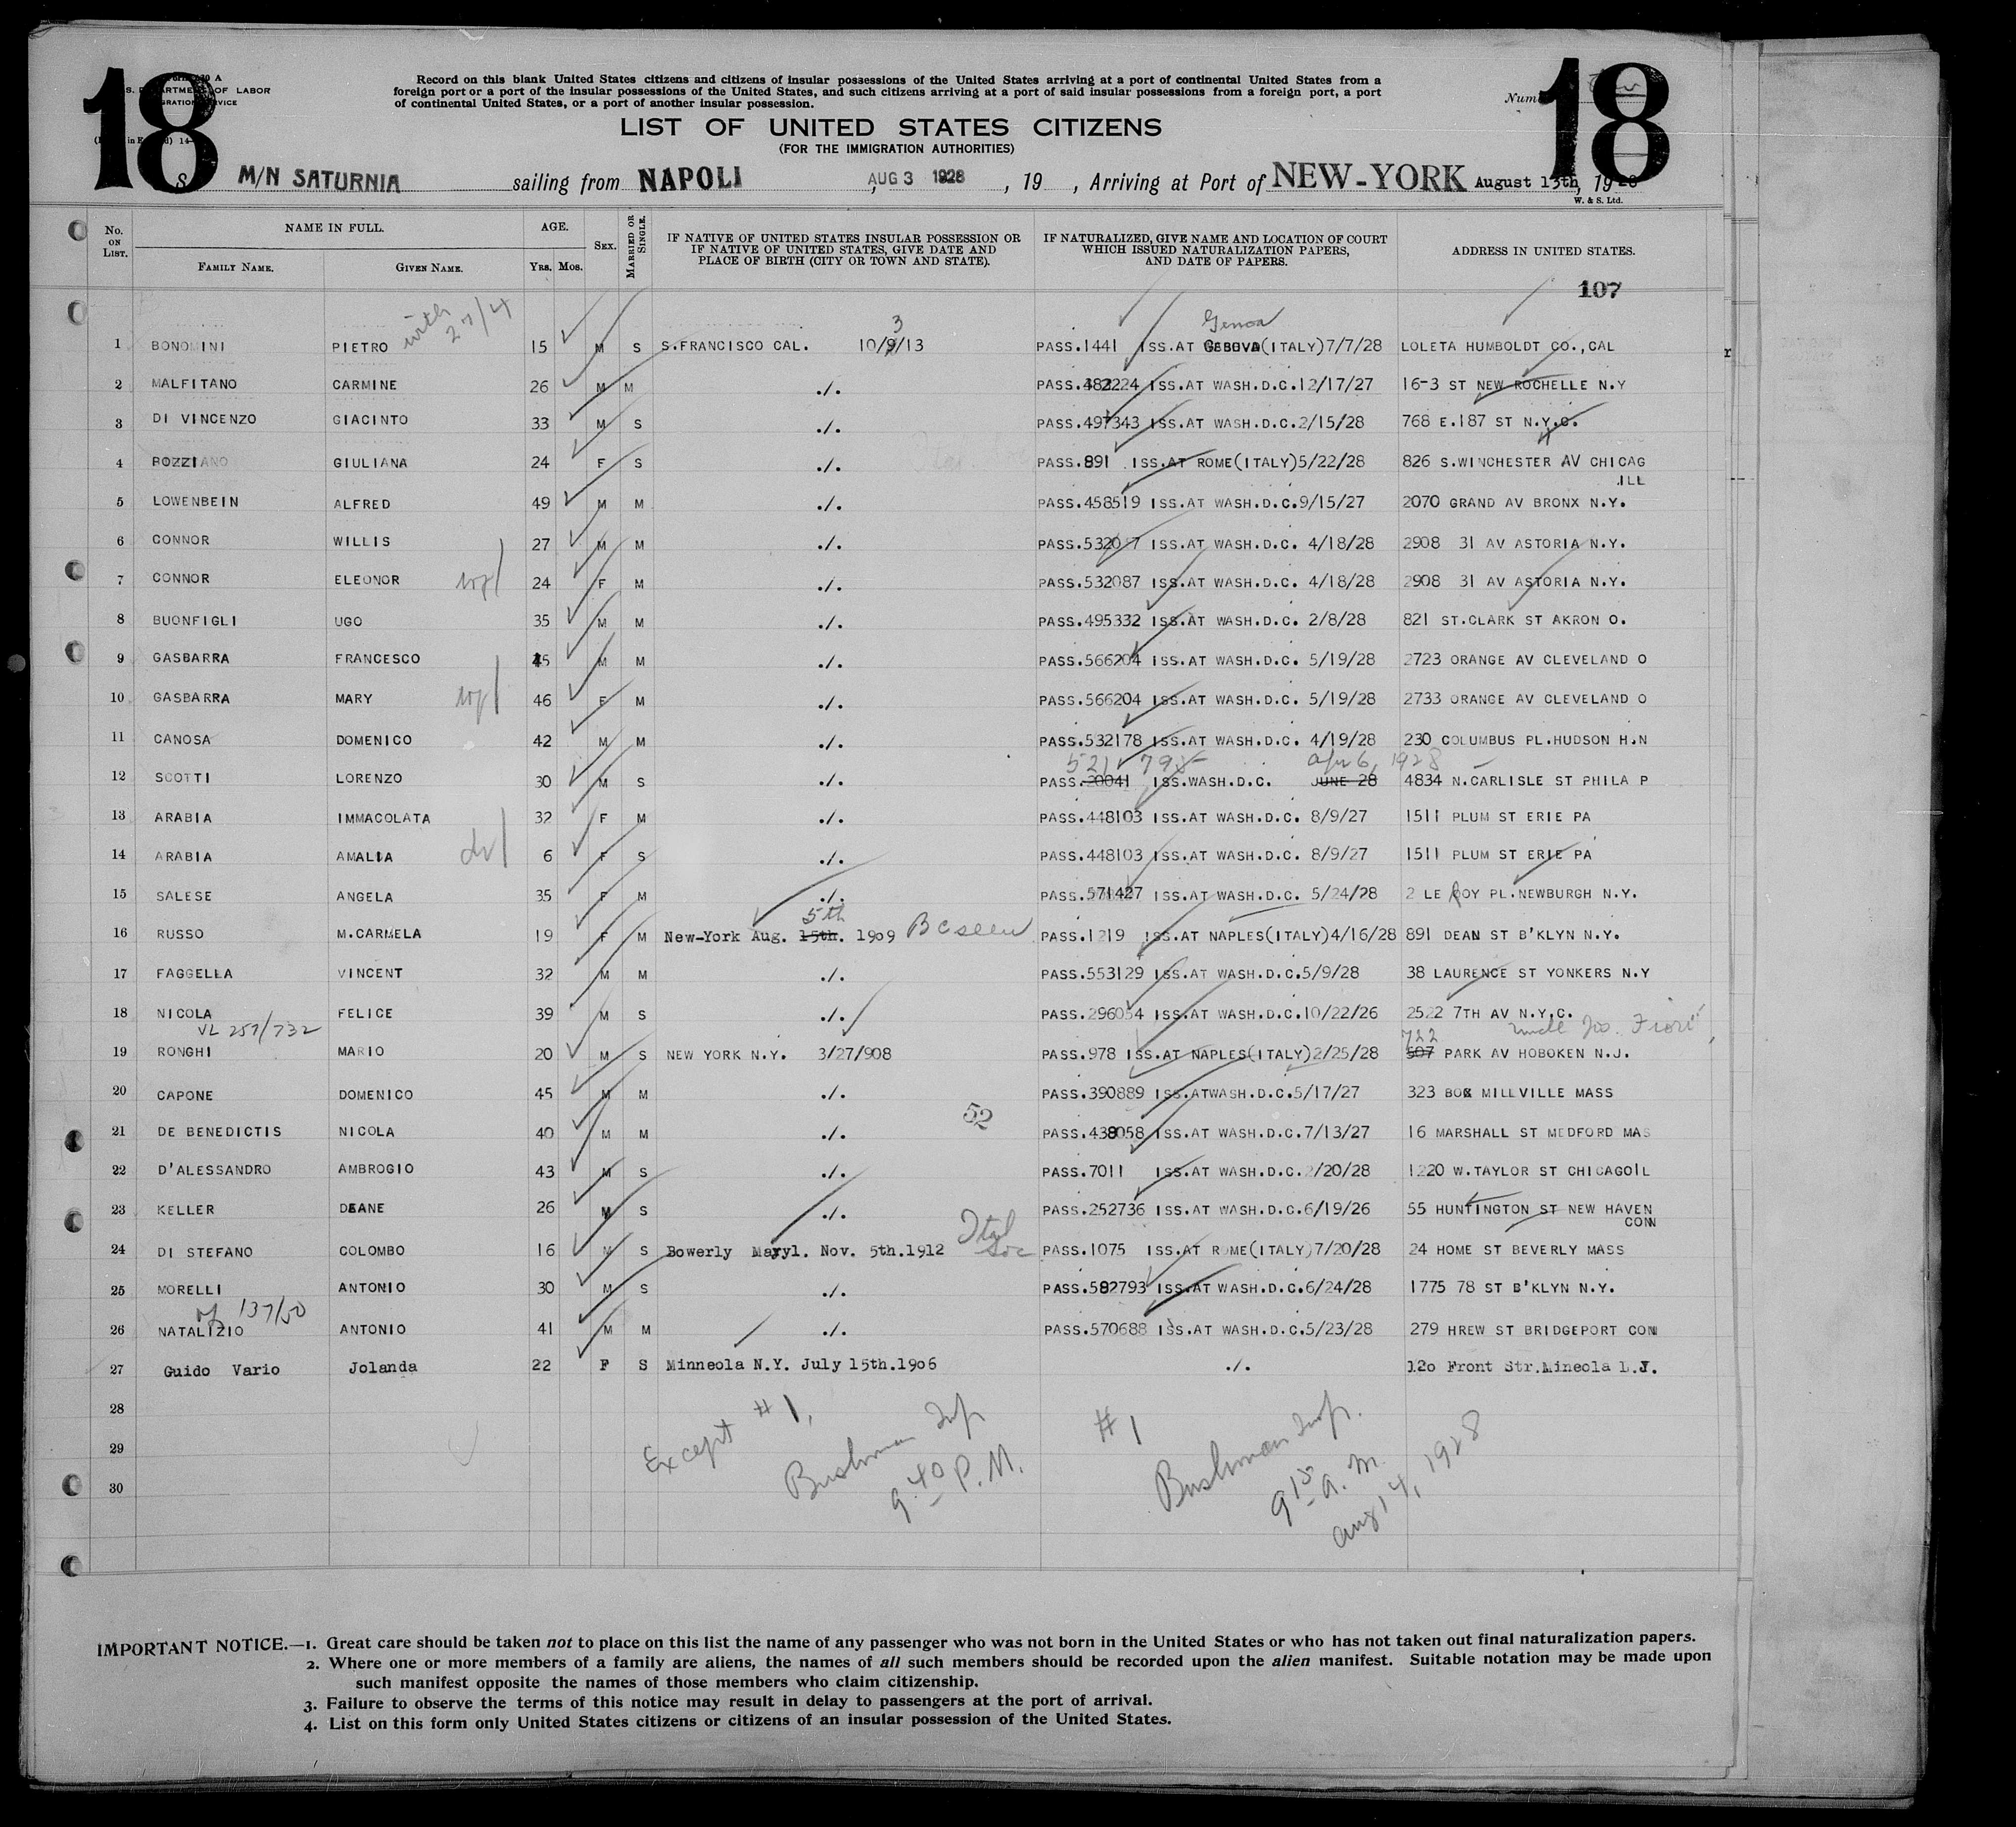 18
18
Form 630 A
U. S. DEPARTMENT OF LABOR
IMMIGRATION SERVICE
Record on this blank United States citizens and citizens of insular possessions of the United States arriving at a port of continental United States from a
foreign port or a port of the insular possessions of the United States, and such citizens arriving at a port of said insular possessions from a foreign port, a port
of continental United States, or a port of another insular possession.
LIST OF UNITED STATES CITIZENS
(FOR THE IMMIGRATION AUTHORITIES)
S. M/N SATURNIA sailing from NAPOLI, AUG 3 1928, 19 , Arriving at Port of NEW-YORK August 13th, 1928
W. & S. Ltd.
No. ON LIST. NAME IN FULL. AGE. SEX. MARRIED OR SINGLE. IF NATIVE OF UNITED STATES INSULAR POSSESSION OR IF NATIVE OF UNITED STATES, GIVE DATE AND PLACE OF BIRTH (CITY OR TOWN AND STATE). IF NATURALIZED, GIVE NAME AND LOCATION OF COURT WHICH ISSUED NATURALIZATION PAPERS, AND DATE OF PAPERS. ADDRESS IN UNITED STATES.
FAMILY NAME. GIVEN NAME. YRS. MOS.
107
with 27/4
3
Genoa
1 BONOMINI PIETRO 15 M S S.FRANCISCO CAL. 10/9/13 PASS.1441 ISS.AT (ITALY)7/7/28 LOLETA HUMBOLDT CO.,CAL
2 MALFITANO CARMINE 26 M M ./. PASS.482224 ISS.AT WASH.D.C.12/17/27 16-3 ST NEW ROCHELLE N.Y
3 DI VINCENZO GIACINTO 33 M S ./. PASS.497343 ISS.AT WASH.D.C.2/15/28 768 E.187 ST N.Y.C.
4 BOZZIANO GIULIANA 24 F S ./. PASS.891 ISS.AT ROME(ITALY)5/22/28 826 S.WINCHESTER AV CHICAG
ILL
5 LOWENBEIN ALFRED 49 M M ./. PASS.458519 ISS.AT WASH.D.C.9/15/27 2070 GRAND AV BRONX N.Y.
6 CONNOR WILLIS 27 M M ./. PASS.532087 ISS.AT WASH.D.C. 4/18/28 2908 31 AV ASTORIA N.Y.
7 CONNOR ELEONOR wf 24 F M ./. PASS.532087 ISS.AT WASH.D.C. 4/18/28 2908 31 AV ASTORIA N.Y.
8 BUONFIGLI UGO 35 M M ./. PASS.495332 ISS.AT WASH.D.C. 2/8/28 821 ST.CLARK ST AKRON O.
9 GASBARRA FRANCESCO 45 M M ./. PASS.566204 ISS.AT WASH.D.C. 5/19/28 2723 ORANGE AV CLEVELAND O
10 GASBARRA MARY wf 46 F M ./. PASS.566204 ISS.AT WASH.D.C. 5/19/28 2733 ORANGE AV CLEVELAND O
11 CANOSA DOMENICO 42 M M ./. PASS.532178 ISS.AT WASH.D.C. 4/19/28 230 COLUMBUS PL.HUDSON H.N
521798 Apr 6, 1928
12 SCOTTI LORENZO 30 M S ./. PASS.20041 ISS.WASH.D.C. JUNE 28 4834 N.CARLISLE ST PHILA P
13 ARABIA IMMACOLATA 32 F M ./. PASS.448103 ISS.AT WASH.D.C. 8/9/27 1511 PLUM ST ERIE PA
14 ARABIA AMALIA 6 F S ./. PASS.448103 ISS.AT WASH.D.C. 8/9/27 1511 PLUM ST ERIE PA
15 SALESE ANGELA 35 F M ./. PASS.571427 ISS.AT WASH.D.C. 5/24/28 2 LE ROY PL.NEWBURGH N.Y.
5th
16 RUSSO M.CARMELA 19 F M New-York Aug. 15th. 1909 BC seen PASS.1219 ISS.AT NAPLES(ITALY)4/16/28 891 DEAN ST B'KLYN N.Y.
17 FAGGELLA VINCENT 32 M M ./. PASS.553129 ISS.AT WASH.D.C.5/9/28 38 LAURENCE ST YONKERS N.Y
18 NICOLA FELICE 39 M S ./. PASS.296054 ISS.AT WASH.D.C.10/22/26 2522 7TH AV N.Y.C.
VL 257/732
722 uncle Jos. Fiori
19 RONGHI MARIO 20 M S NEW YORK N.Y. 3/27/908 PASS.978 ISS.AT NAPLES(ITALY)2/25/28 507 PARK AV HOBOKEN N.J.
20 CAPONE DOMENICO 45 M M ./. PASS.390889 ISS.ATWASH.D.C.5/17/27 323 BOX MILLVILLE MASS
52
21 DE BENEDICTIS NICOLA 40 M M ./. PASS.438058 ISS.AT WASH.D.C.7/13/27 16 MARSHALL ST MEDFORD MAS
22 D'ALESSANDRO AMBROGIO 43 M S ./. PASS.7011 ISS.AT WASH.D.C.2/20/28 1220 W.TAYLOR ST CHICAGOIL
23 KELLER DEANE 26 M S ./. PASS.252736 ISS.AT WASH.D.C.6/19/26 55 HUNTINGTON ST NEW HAVEN
CONN
24 DI STEFANO COLOMBO 16 M S Bowerly Maryl. Nov. 5th.1912 PASS.1075 ISS.AT ROME(ITALY)7/20/28 24 HOME ST BEVERLY MASS
25 MORELLI ANTONIO 30 M S ./. PASS.582793 ISS.AT WASH.D.C.6/24/28 1775 78 ST B'KLYN N.Y.
137/50
26 NATALIZIO ANTONIO 41 M M ./. PASS.570688 ISS.AT WASH.D.C.5/23/28 279 HREW ST BRIDGEPORT CON
27 Guido Vario Jolanda 22 F S Minneola N.Y. July 15th.1906 ./. 12o Front Str.Mineola L.I.
28
29
30
Except #1,
Bushman Insp
9.40 P.M.
#1
Bushman Insp.
9 15 a.m.
Aug 14, 1928
IMPORTANT NOTICE.—1. Great care should be taken not to place on this list the name of any passenger who was not born in the United States or who has not taken out final naturalization papers.
2. Where one or more members of a family are aliens, the names of all such members should be recorded upon the alien manifest. Suitable notation may be made upon
such manifest opposite the names of those members who claim citizenship.
3. Failure to observe the terms of this notice may result in delay to passengers at the port of arrival.
4. List on this form only United States citizens or citizens of an insular possession of the United States.